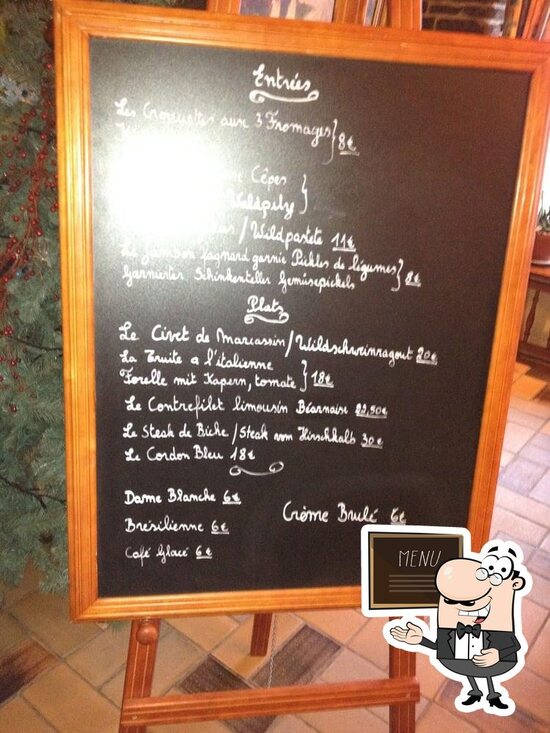 Entrées
Les Croquettes aux 3 Fromages
8€
Cêpes
Waldpilz
/Wildpastete 11€
Le Jambon fagnard garnie Pickles de légumes
Garnierter Schinkenteller Gemüsepickels 8€
Plats
Le Civet de Marcassin/Wildschweinragout 20€
La Truite a l'italienne
Forelle mit Kapern, tomate 18€
Le Contrefilet limousin Béarnaise 22,50€
Le Steak de Biche/Steak vom Hirschkalb 30€
Le Cordon Bleu 18€
Dame Blanche 6€
Crème Brulé 6€
Brésilienne 6€
Café Glacé 6€
MENU